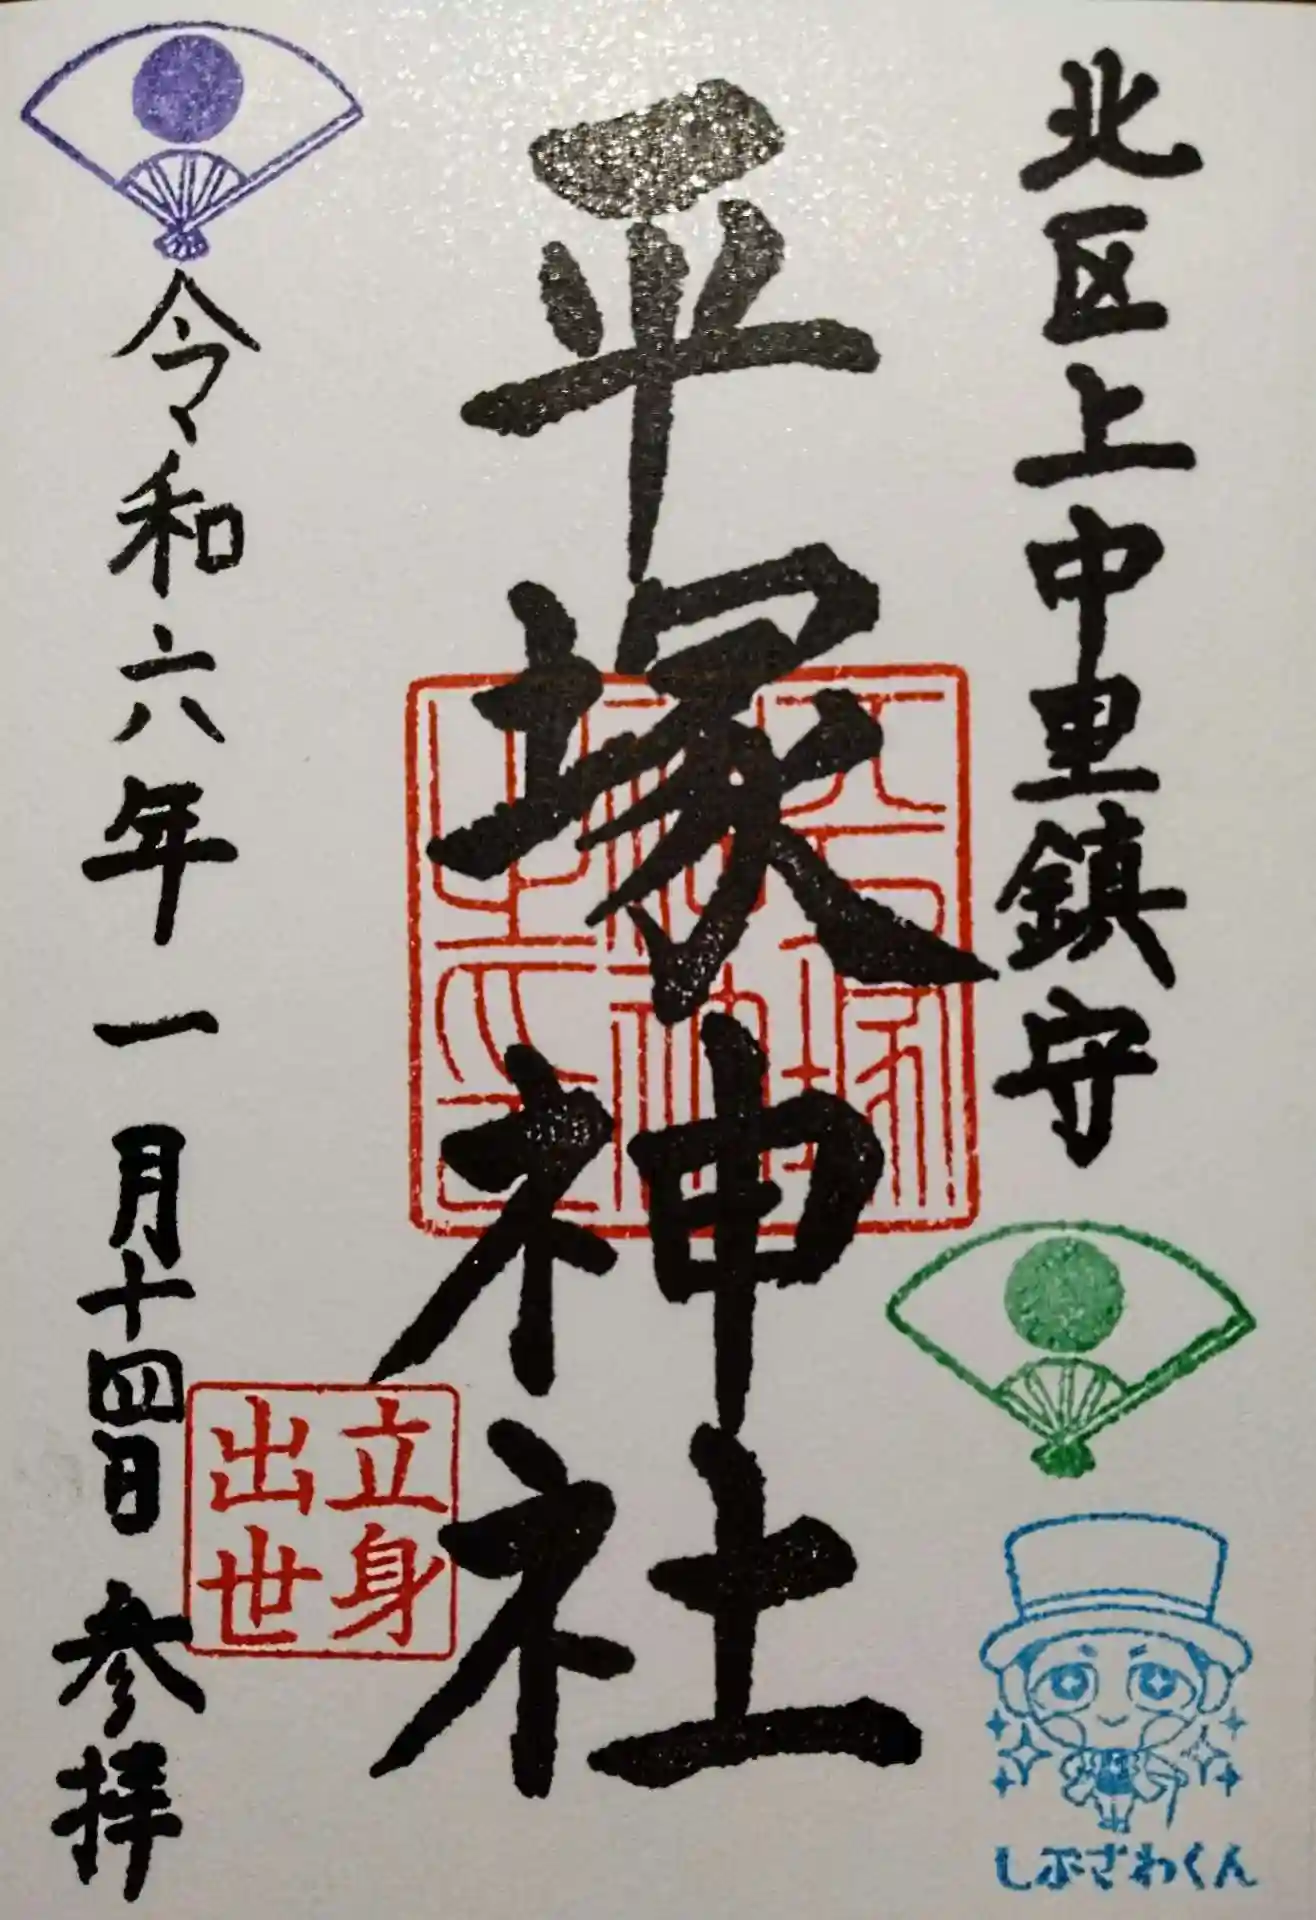 北区上中里鎮守
平塚神社
平塚神社之印
立身
出世
令和六年一月十四日 参拝
しぶざわくん